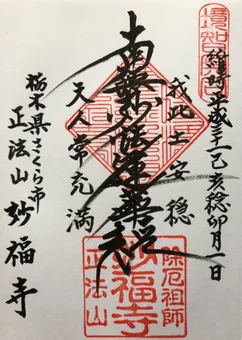 維時平成三十一己亥稔卯月一日
我此土安穏
南無妙法蓮華経
天人常充満
栃木県さくら市
正法山妙福寺
除厄祖師
妙福寺
正法山